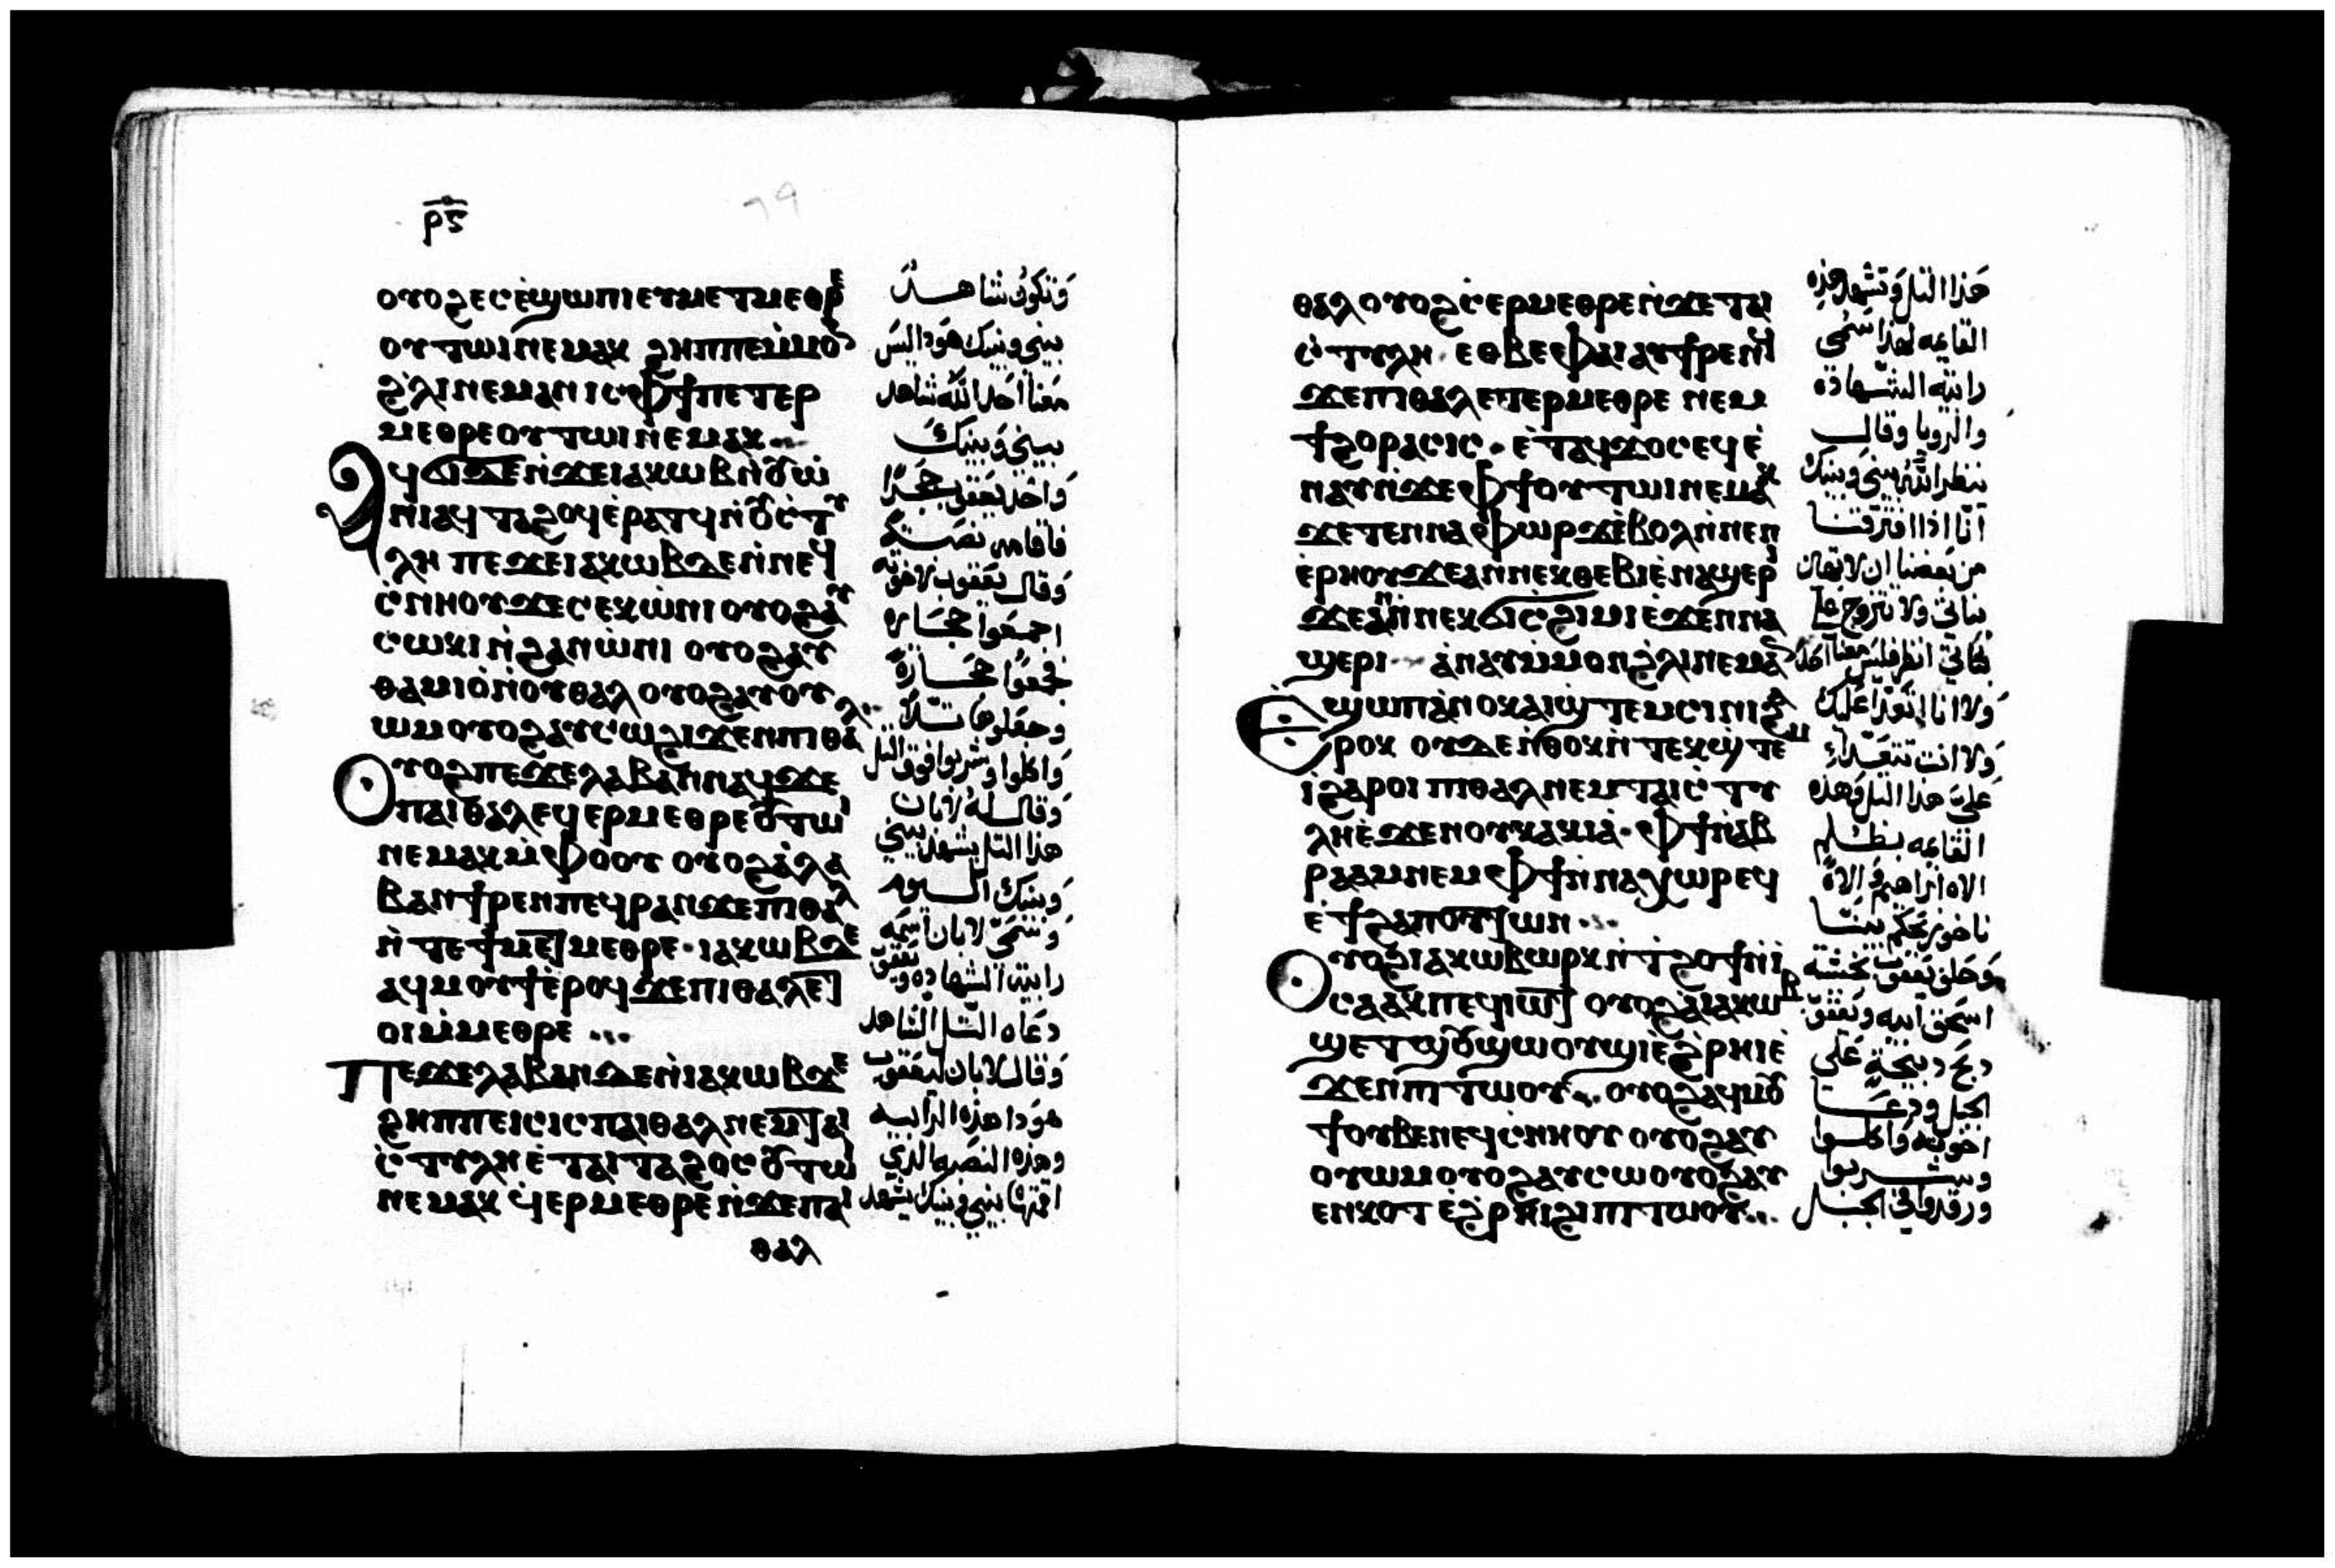 ⲣ̅ⲋ̅
ⲟⲩⲟϩ ⲉⲥⲉ̀ϣⲱⲡⲓ ⲉⲩⲙⲉⲧⲙⲉⲑⲣⲉ
ⲟⲩⲧⲱⲓ ⲛⲉⲙⲁⲕ ϩⲏⲡⲡⲉ ⲙ̀ⲙⲟⲛ
ϩ̀ⲗⲓ ⲛⲉⲙⲁⲛ ⲓⲥ ⲫϯ ⲡⲉⲧⲉⲣ
ⲙⲉⲑⲣⲉ ⲟⲩⲧⲱⲓ ⲛⲉⲙⲁⲕ
ⲁϥϭⲓ ⲇⲉ ⲛ̀ϫⲉ ⲓⲁⲕⲱⲃ ⲛ̀ⲟⲩⲱ̀
ⲛⲓ ⲁϥⲧⲁϩⲟϥ ⲉ̀ⲣⲁⲧϥ ⲛ̀ⲟⲩⲥ̀ⲧⲩ
ⲗⲏ ⲡⲉϫⲉ ⲓⲁⲕⲱⲃ ⲇⲉ ⲛ̀ⲛⲉϥ
ⲥ̀ⲛⲏⲟⲩ ϫⲉ ⲥⲉⲕ ⲱ̀ⲛⲓ ⲟⲩⲟϩ ⲁⲩ
ⲥⲱⲕⲓ ⲛ̀ϩⲁⲛⲱ̀ⲛⲓ ⲟⲩⲟϩ ⲁⲩ
ⲑⲁⲙⲓⲟ̀ ⲛ̀ⲟⲩⲑⲁⲗ ⲟⲩⲟϩ ⲁⲩⲟⲩ
ⲱⲙ ⲟⲩⲟϩ ⲁⲩⲥⲱ ϩⲓϫⲉⲛ ⲡⲓⲑⲁⲗ
ⲟⲩⲟϩ ⲡⲉϫⲉ ⲗⲁⲃⲁⲛ ⲛⲁϥ ϫⲉ
ⲡⲁⲓⲑⲁⲗ ⲉϥⲉⲣⲙⲉⲑⲣⲉ ⲟⲩⲧⲱⲓ
ⲛⲉⲙⲁⲕ ⲙ̀ⲫⲟⲟⲩ ⲟⲩⲟϩ ⲁ̀ⲗⲁ
ⲃⲁⲛ ϯⲣⲉⲛ ⲡⲉϥⲣⲁⲛ ϫⲉ ⲡⲓⲑⲁⲗ
ⲛ̀ⲧⲉ ϯⲙⲉⲧⲙⲉⲑⲣⲉ · ⲓⲁⲕⲱⲃ ⲇⲉ
ⲁϥⲙⲟⲩϯ ⲉ̀ⲣⲟϥ ϫⲉ ⲡⲓⲑⲁⲗ ⲉⲧ
ⲟⲓ ⲙ̀ⲙⲉⲑⲣⲉ
ⲡⲉϫⲉ ⲗⲁⲃⲁⲛ ⲇⲉ ⲛ̀ⲓⲁⲕⲱⲃ ϫⲉ
ϩⲏⲡⲡⲉ ⲓⲥ ⲓⲥ ⲡⲁⲓⲑⲁⲗ ⲛⲉⲙ ⲧⲁⲓ
ⲥ̀ⲧⲩⲗⲏ ⲉ̀ⲧⲁⲓⲧⲁϩⲟⲥ ⲟⲩⲧⲱⲓ
ⲛⲉⲙⲁⲕ ϥⲉⲣⲙⲉⲑⲣⲉ ⲛ̀ϫⲉ ⲡⲁⲓ
ⲑⲁⲗ
وتكون شاهد
بيني وبينك هوذا ليس
معنا احد الله شاهد
بيني وبينك
واخذ يعقوب حجرًا
فاقامه نصبة
وقال يعقوب لاخوته
اجمعوا حجاره
فجمعوا حجارة
وجعلوها تلا
واكلوا وشربوا فوق التل
وقال له لابان
هذا التل يشهد بيني
وبينك اليوم
وسمى لابان اسمه
رابية الشهاده ويعقوب
دعاه التل الشاهد
وقال لابان ليعقوب
هوذا هذه الرابيه
وهذه النصبه الذي
اقمتها بيني وبينك يشهد
ⲑⲁⲗ ⲟⲩⲟϩ ⲥ̀ⲉⲣⲙⲉⲑⲣⲉ ⲛ̀ϫⲉ ⲧⲁⲓ
ⲥ̀ⲧⲩⲗⲏ · ⲉⲑⲃⲉ ⲫⲁⲓ ⲁⲩϯⲣⲉⲛϥ
ϫⲉ ⲡⲓⲑⲁⲗ ⲉⲧⲉⲣⲙⲉⲑⲣⲉ ⲛⲉⲙ
ϯϩⲟⲣⲁⲥⲓⲥ · ⲉ̀ⲧⲁϥϫⲟⲥ ⲉϥⲉ̀
ⲛⲁⲩ ⲛ̀ϫⲉ ⲫϯ ⲟⲩⲧⲱⲓ ⲛⲉⲙⲁⲕ
ϫⲉ ⲧⲉⲛⲛⲁⲫⲱⲣϫ ⲉ̀ⲃⲟⲗ ⲛ̀ⲛⲉⲛ
ⲉ̀ⲣⲏⲟⲩ ϫⲉ ⲁⲛⲛⲉⲕⲑⲉⲃⲓⲉ̀ ⲛⲁϣⲉⲣⲓ
ϫⲉ ⲁⲛⲛⲉⲕϭⲓ ⲥϩⲓⲙⲓ ⲉ̀ϫⲉⲛ ⲛⲁ
ϣⲉⲣⲓ ⲁ̀ⲛⲁⲩ ⲙ̀ⲙⲟⲛ ϩ̀ⲗⲓ ⲛⲉⲙⲁⲛ
ⲉϣⲱⲡ ⲁ̀ⲛⲟⲕ ⲁⲓϣ̀ⲧⲉⲙⲥⲓⲛⲓ ϩⲁ
ⲣⲟⲕ ⲟⲩⲇⲉ ⲛ̀ⲑⲟⲕ ⲛ̀ⲧⲉⲕϣ̀ⲧⲉⲙ
ⲓ̀ ϩⲁⲣⲟⲓ ⲡⲓⲑⲁⲗ ⲛⲉⲙ ⲧⲁⲓⲥ̀ⲧⲩ
ⲗⲏ ⲉ̀ϫⲉⲛ ⲟⲩⲕⲁⲕⲓⲁ̀ · ⲫϯ ⲛ̀ⲁⲃ
ⲣⲁⲁⲙ ⲛⲉⲙ ⲫϯ ⲛ̀ⲛⲁⲭⲱⲣ ⲉϥ
ⲉ̀ϯϩⲁⲡ ⲟⲩⲧⲱⲛ
ⲟⲩⲟϩ ⲓⲁⲕⲱⲃ ⲱⲣⲕ ⲛ̀ϯϩⲟϯ ⲛ̀ⲓ̀
ⲥⲁⲁⲕ ⲡⲉϥⲓⲱⲧ ⲟⲩⲟϩ ⲁⲓⲁⲕⲱⲃ
ϣⲉⲧ ϣⲟⲩϣⲱⲟⲩϣⲓ ⲉ̀ϩ̀ⲣⲏⲓ ⲉ̀
ϫⲉⲛ ⲡⲓⲧⲱⲟⲩ ⲟⲩⲟϩ ⲁϥⲙⲟⲩ
ϯ ⲟⲩⲃⲉ ⲛⲉϥⲥ̀ⲛⲏⲟⲩ ⲟⲩⲟϩ ⲁⲩ
ⲟⲩⲱⲙ ⲟⲩⲟϩ ⲁⲩⲥⲱ ⲟⲩⲟϩ ⲁⲩ
ⲉⲛⲕⲟⲧ ⲉ̀ϩ̀ⲣⲏⲓ ϩⲓ ⲡⲓⲧⲱⲟⲩ
هذا التل وتشهد هذه
القايمه لهذا سمى
رابية الشهادة
والرويا وقال
ينظر الله بيني وبينك
اننا اذا افترقنا
من بعضنا ان لا تهين
بناتي ولا تتزوج على
بناتي انظر فليس معنا احد
ولا انا اتعدا عليك
ولا انت تتعدا
علي هذا التل وهذه
القايمه بظلم
الاه ابراهيم والاه
ناخور يحكم بيننا
وحلف يعقوب بخشية
اسحق ابيه ويعقوب
ذبح ذبيحة على
الجبل ودعا
اخوته واكلوا
وشربوا
ورقدوا في الجبل